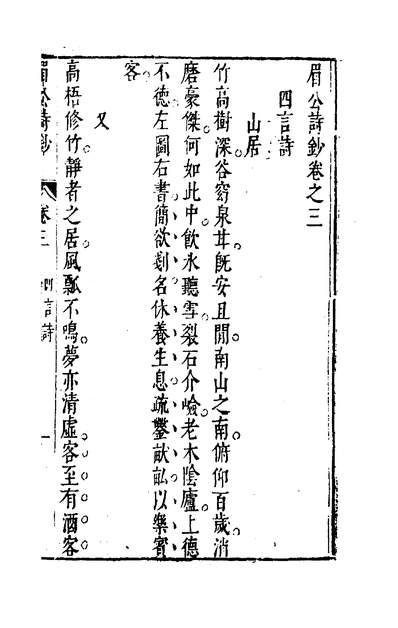 眉公詩鈔卷之三
四言詩
山居
竹高樹深谷窈泉甘既安且閒南山之南俯仰百歲消
磨豪傑何如此中飲氷聽雪裂石介嶮老木陰廬上德
不德左圖右書簡欲剷名休養生息疏鑿畝畆以樂賓
客
又
高梧修竹靜者之居風瓢不鳴夢亦清虛客至有酒客
眉公詩鈔 卷三 四言詩 一